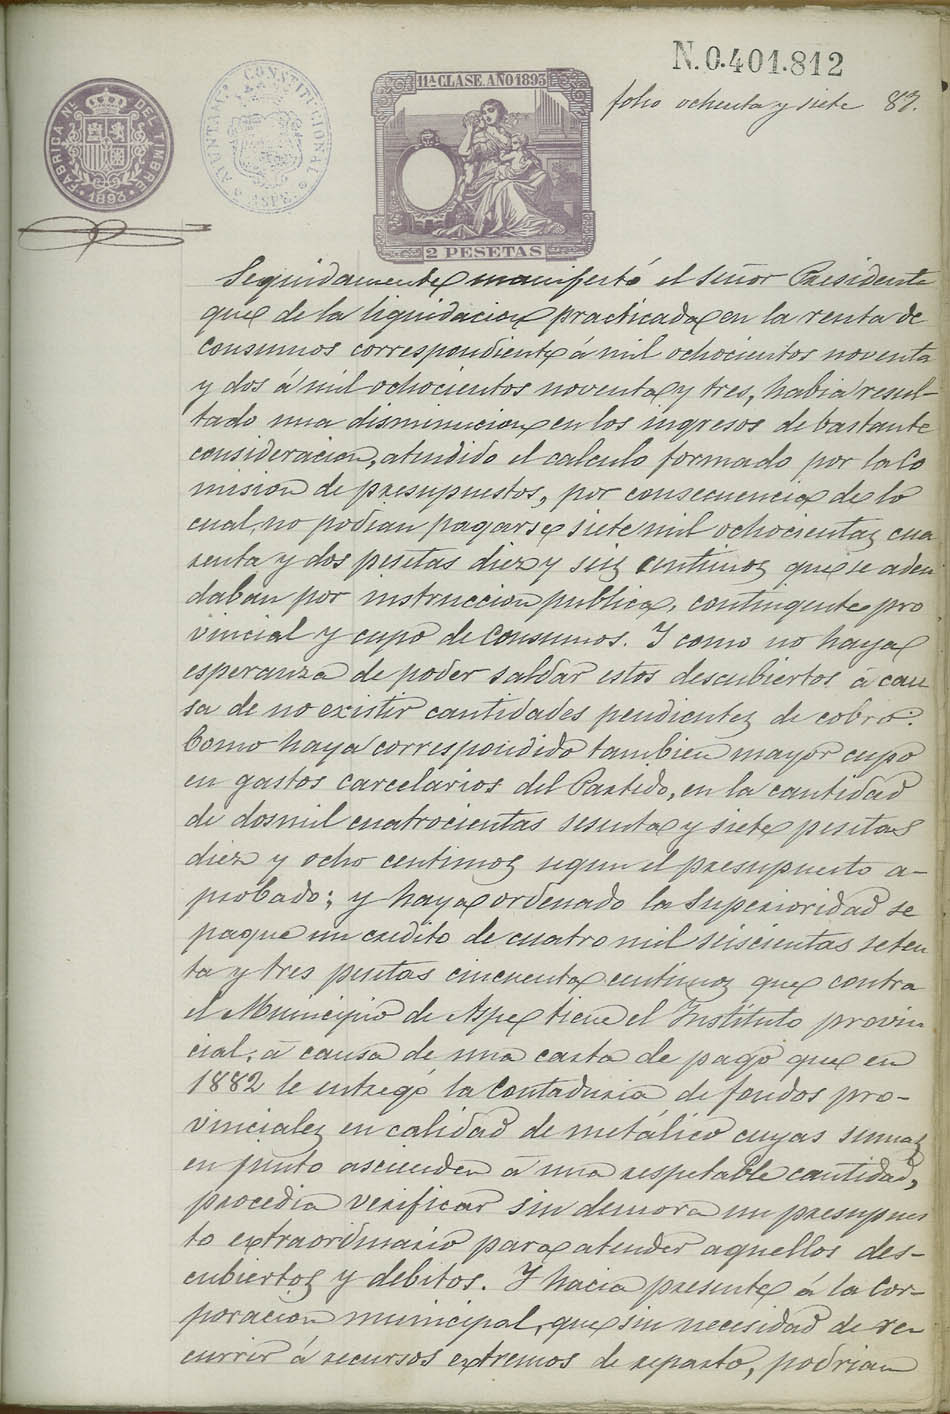 N.0.401.812
11ª CLASE. AÑO 1893
FABRICA Nᴸ DEL TIMBRE
1893
AYUNTAMᵀᴼ CONSTITUCIONAL
ASPE
2 PESETAS
folio ochenta y siete 87.
Seguidamente manifestó el Señor Presidente
que de la liquidacion practicada en la renta de
Consumos correspondiente á mil ochocientos noventa
y dos á mil ochocientos noventa y tres, habia resul-
tado una disminucion en los ingresos de bastante
consideracion, atendido el calculo formado por la Co
mision de presupuestos, por consecuencia de lo
cual, no podian pagarse siete mil ochocientas cua
renta y dos pesetas diez y seis centimos que se adeu
daban por instruccion publica, contingente pro
vincial y cupo de Consumos. Y como no haya
esperanza de poder saldar estos descubiertos á cau
sa de no existir cantidades pendientes de cobro.
Como haya correspondido tambien mayor cupo
en gastos carcelarios del Partido, en la cantidad
de dosmil cuatrocientas sesenta y siete pesetas
diez y ocho centimos segun el presupuesto a-
probado; y haya ordenado la Superioridad se
pague un credito de cuatro mil seiscientas seten
ta y tres pesetas cincuenta centimos que contra
el Municipio de Aspe tiene el Instituto provin
cial, á causa de una carta de pago que en
1882 le entregó la Contaduria de fondos pro-
vinciales en calidad de metálico cuyas sumas
en junto ascienden á una respetable cantidad,
procedia verificar sin demora un presupues
to extraordinario para atender aquellos des-
cubiertos y debitos. Y hacia presente á la Cor-
poracion municipal, que sin necesidad de re
currir á recursos extremos de reparto, podrian